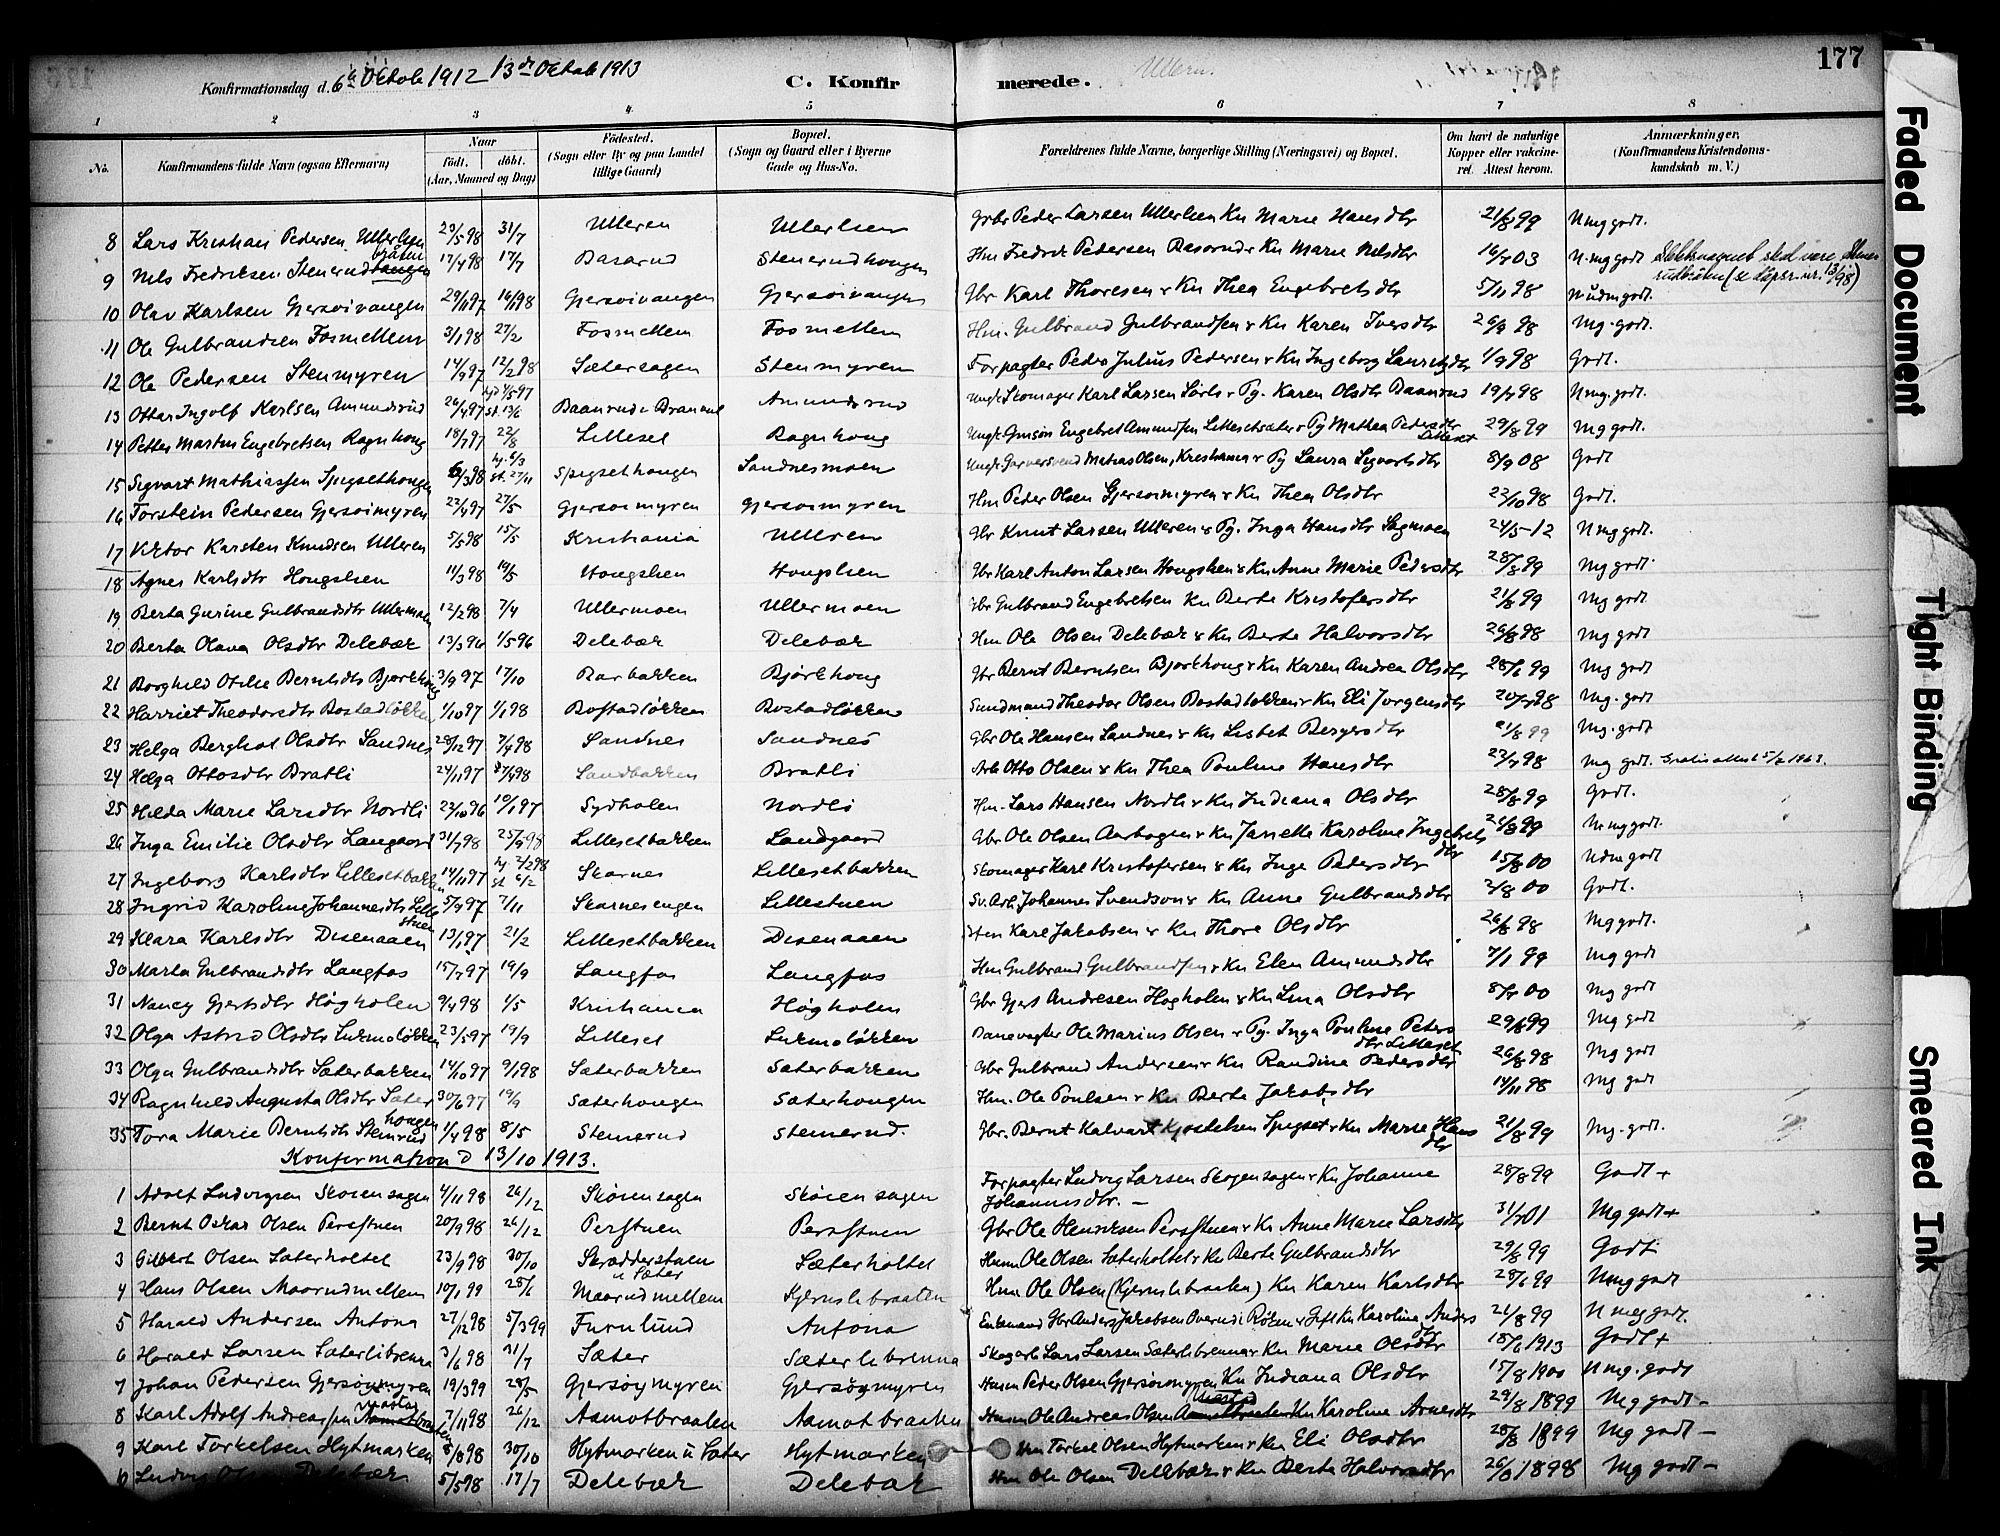 177
Konfirmationsdag d. 6te Oktob 1912 13de Oktob 1913
C. Konfirmerede.
Ullern.
1 2 3 4 5 6 7 8
No.
Konfirmandens fulde Navn (ogsaa Efternavn)
Naar
födt. döbt.
(Aar, Maaned og Dag)
Födested.
(Sogn eller By og paa Landet
tillige Gaard)
Bopæl.
(Sogn og Gaard eller i Byerne
Gade og Hus-No.
Forældrenes fulde Navne, borgerlige Stilling (Næringsvei) og Bopæl.
Om havt de naturlige
Kopper eller vakcine-
ret. Attest herom.
Anmærkninger.
(Konfirmandens Kristendoms-
kundskab m. V.)
8 Lars Kristian Pedersen Ullerhsen 23/5 98 31/7 Ulleren Ullerhsen Gbr Peder Larsen Ullerhsen Kn Marie Hansdtr 21/8 99 Nmg godt.
9 Nils Fredriksen Stenerud 17/4 98 17/7 Basarud Stenerudhougen Hm Fredrik Pedersen Basarud & Kn Marie Nilsdtr 16/7 03 N. mg godt
10 Olav Karlsen Gjersöivangen 29/11 97 16/1 98 Gjersöivangen Gjersöivangen Gbr Karl Thoresen & Kn Thea Engebretsdtr 5/11 98 N udm godt.
11 Ole Gulbrandsen Fosmellem 3/1 98 27/2 Fosmellem Fosmellem Hm. Gulbrand Gulbrandsen & Kn Karen Iversdtr 26/8 98 Mg. godt.
12 Ole Pedersen Stenmyren 14/9 97 12/2 98 Sætersagen Stenmyren Forpagter Peder Julius Pedersen & Kn Ingeborg Lauritzdtr 1/9 98 Godt.
13 Ottar Ingolf Karlsen Amundsrud 26/4 97 st. 13/6 Baanrud i Brandval Amundsrud Ungk Skomager Karl Larsen & Pg. Karen Olsdtr Baanrud 19/7 98 Nmg. godt.
14 Petter Martin Engebretsen Ragnhoug 18/7 97 22/8 Lilleset Ragnhoug Ungk Engebret Amundsen Lillesetsæter & Pg Mathea Pedersdtr Lilleset 29/8 99 Mg godt.
15 Sigvart Mathiassen Spigsethougen 6/3 98 hj. 6/3 st. 27/11 Spigsethougen Sandnesmoen Ungk Garversvend Matias Olsen, Kristiania & Pg Laura Sigvartsdtr 8/9 08 Godt
16 Torstein Pedersen Gjersöimyren 22/4 97 27/5 Gjersöimyren Gjersöimyren Hm Peder Olsen Gjersöimyren & Kn Thea Olsdtr 22/10 98 Godt.
17 Viktor Karsten Knudsen Ulleren 5/5 98 15/5 Kristiania Ulleren Gbr Knut Larsen Ulleren & Pg. Inga Hansdtr Sagmoen 24/5-12 N mg godt.
18 Agnes Karlsdtr Hougshen 11/3 98 19/5 Hougshen Hougshen Gbr Karl Anton Larsen Hougshen & Kn Anne Marie Pedersdtr 28/8 99 Mg godt.
19 Berta Gurine Gulbrandsdtr Ullermoen 12/2 98 7/4 Ullermoen Ullermoen Gbr Gulbrand Engebretsen Kn Berte Kristofersdtr 21/8 99 Mg godt
20 Berta Olava Olsdtr Delebær 13/3 96 1/5 96 Delebær Delebær Hm Ole Olsen Delebær & Kn Berte Halvorsdtr 26/8 98 Mg godt
21 Borghild Otilie Berntsdtr Bjørkhoug 3/9 97 17/10 Barbakken Bjørkhoug Gbr Bernt Berntsen Bjørkhoug & Kn Karen Andrea Olsdtr 28/6 99 Mg godt
22 Harriet Theodorsdtr Bostadløkken 1/10 97 1/1 98 Bostadløkken Bostadløkken Theodor Olsen Bostadløkken & Kn Eli Jorgensdtr 20/7 98 Mg. godt
23 Helga Berghot Olsdtr Sandnes 28/12 97 7/4 98 Sandnes Sandnes Gbr Ole Hansen Sandnes & Kn Lisbet Bergersdtr 21/8 99 Mg. godt.
24 Helga Ottosdtr Bratli 24/11 97 7/4 98 Sandbakken Bratli Arb Otto Olsen & Kn Thea Pouline Hansdtr 22/7 98 Mg godt. Gratis attest 5/2 1963.
25 Hilda Marie Larsdtr Nordli 22/10 96 10/1 97 Sydholen Nordli Hm. Lars Hansen Nordli & Kn Indiana Olsdtr 28/8 99 Godt.
26 Inga Emilie Olsdtr Langaard 31/7 98 25/9 98 Lillesetbakken Landgaard Gbr Ole Olsen Aarbogen & Kn Janette Karoline Ingebretsdtr 21/8 99 N mg godt.
27 Ingeborg Karlsdtr Lillesetbakken 14/11 97 hj. 2/2 98 st. 6/2 Skarnes Lillesetbakken Skomager Karl Kristofersen & Kn Inga Pedersdtr 15/8 00 Udm godt
28 Ingrid Karoline Johannesdtr Lillestuen 5/9 97 7/11 Skarnesengen Lillestuen Sv. Arb. Johannes Svendsen & Kn Anne Gulbrandsdtr 2/8 00 Godt.
29 Klara Karlsdtr Disenaaen 13/1 97 21/2 Lillesetbakken Disenaaen Karl Jakobsen & Kn Thore Olsdtr 26/8 98 Mg godt.
30 Marta Gulbrandsdtr Langfos 15/7 97 19/9 Langfos Langfos Hm Gulbrand Gulbrandsen & Kn Elen Amundsdtr 7/1 99 Mg godt
31 Nancy Gjertsdtr Høgholen 9/4 98 1/5 Kristiania Høgholen Gbr Gjert Andresen Høgholen & Kn Lina Olsdtr 8/7 00 Mg godt
32 Olga Astrid Olsdtr Lukmoløkken 23/5 97 19/9 Lilleset Lukmoløkken Banevagter Ole Marius Olsen & Pg. Inga Pouline Petersdtr Lilleset 29/8 99 Mg godt
33 Olga Gulbrandsdtr Sæterbakken 14/10 97 9/1 98 Sæterbakken Sæterbakken Gbr Gulbrand Andersen & Kn Randine Pedersdtr 26/8 98 Mg godt
34 Ragnhild Augusta Olsdtr Sæterhougen 30/6 97 19/9 Sæterhougen Sæterhougen Hm. Ole Poulsen & Kn Berte Jakobsdtr 14/11 98 Mg godt
35 Tora Marie Berntsdtr Stenerud 1/4 98 8/5 Stenerud Stenerud. Gbr. Bernt Kalvart Kjostelsen Spigset & Kn Marie Hansdtr 21/8 99 Mg. godt.
Konfirmation d 13/10 1913.
1 Adolf Ludvigsen Skösensagen 4/11 98 26/12 Skösensagen Skösensagen Forpagter Ludvig Larsen Skosensagen & Kn Johanne Johannesdtr. — 28/8 99 Godt +
2 Bernt Oskar Olsen Persstuen 20/9 98 26/12 Persstuen Persstuen Gbr Ole Henriksen Persstuen & Kn Anne Marie Larsdtr 31/7 01 Mg godt +
3 Gilbert Olsen Sæterholtet 23/9 98 30/10 Skrædderstuen u Sæter Sæterholtet Husm Ole Olsen Sæterholtet & Kn Berte Gulbrandsdtr 29/8 99 Godt
4 Hans Olsen Maarudmellem 10/1 99 28/6 Maarudmellem Kjernslibraaten Hm Ole Olsen (Kjernslibraaten) Kn Karen Karlsdtr 28/6 99 Nmg godt
5 Harald Andersen Antona 27/12 98 5/3 99 Furulund Antona Enkemand Gbr Anders Jakobsen Overud i Röken & Gift Kn Karoline Andersdtr 21/8 99 N meg godt.
6 Harald Larsen Sæterlibrenna 3/6 98 31/7 Sæter Sæterlibrenna Skogarb Lars Larsen Sæterlibrenna & Kn Marie Olsdtr 18/6 1913 Godt +
7 Johan Pedersen Gjersöymyren 19/3 99 28/5 Gjersöymyren Gjersöymyren Husm Peder Olsen Gjersöimyren Kn Indiana Olsdtr 15/8 1900 Nmg. godt
8 Karl Adolf Andreassen 7/11 98 26/12 Aamotbraaten Aamotbraaten Husm Ole Andreas Olsen Aamotbraaten Kn Karoline Arnesdtr 29/8 1899 Mg godt —
9 Karl Torkelsen Hytmarken 8/6 98 30/10 Hytmarken u Sæter Hytmarken Hm Torkel Olsen Hytmarken & Kn Eli Olsdtr 28/8 1899 Mg godt —
10 Ludvig Olsen Delebær 5/5 98 17/7 Delebær Delebær Hm Ole Olsen Delebær & Kn Berta Halvorsdtr 26/8 1898 Mg godt —
Faded Document
Tight Binding
Smeared Ink